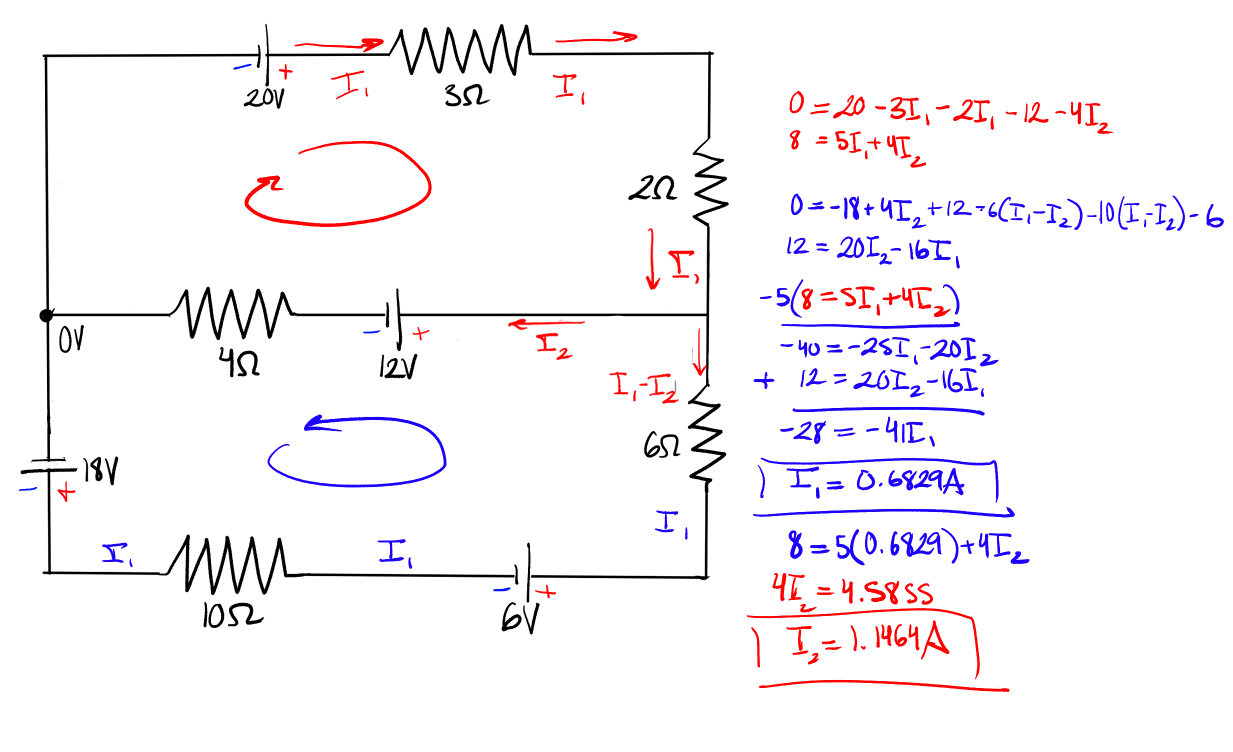 20V
-
+
I₁
3Ω
I₁
2Ω
I₁
0V
4Ω
-
+
12V
I₂
I₁-I₂
6Ω
18V
-
+
I₁
10Ω
I₁
-
+
6V
I₁
0 = 20 - 3I₁ - 2I₁ - 12 - 4I₂
8 = 5I₁ + 4I₂
0 = -18 + 4I₂ + 12 - 6(I₁-I₂) - 10(I₁-I₂) - 6
12 = 20I₂ - 16I₁
-5(8 = 5I₁ + 4I₂)
-40 = -25I₁ - 20I₂
+ 12 = 20I₂ - 16I₁
-28 = -41I₁
I₁ = 0.6829A
8 = 5(0.6829) + 4I₂
4I₂ = 4.5855
I₂ = 1.1464A